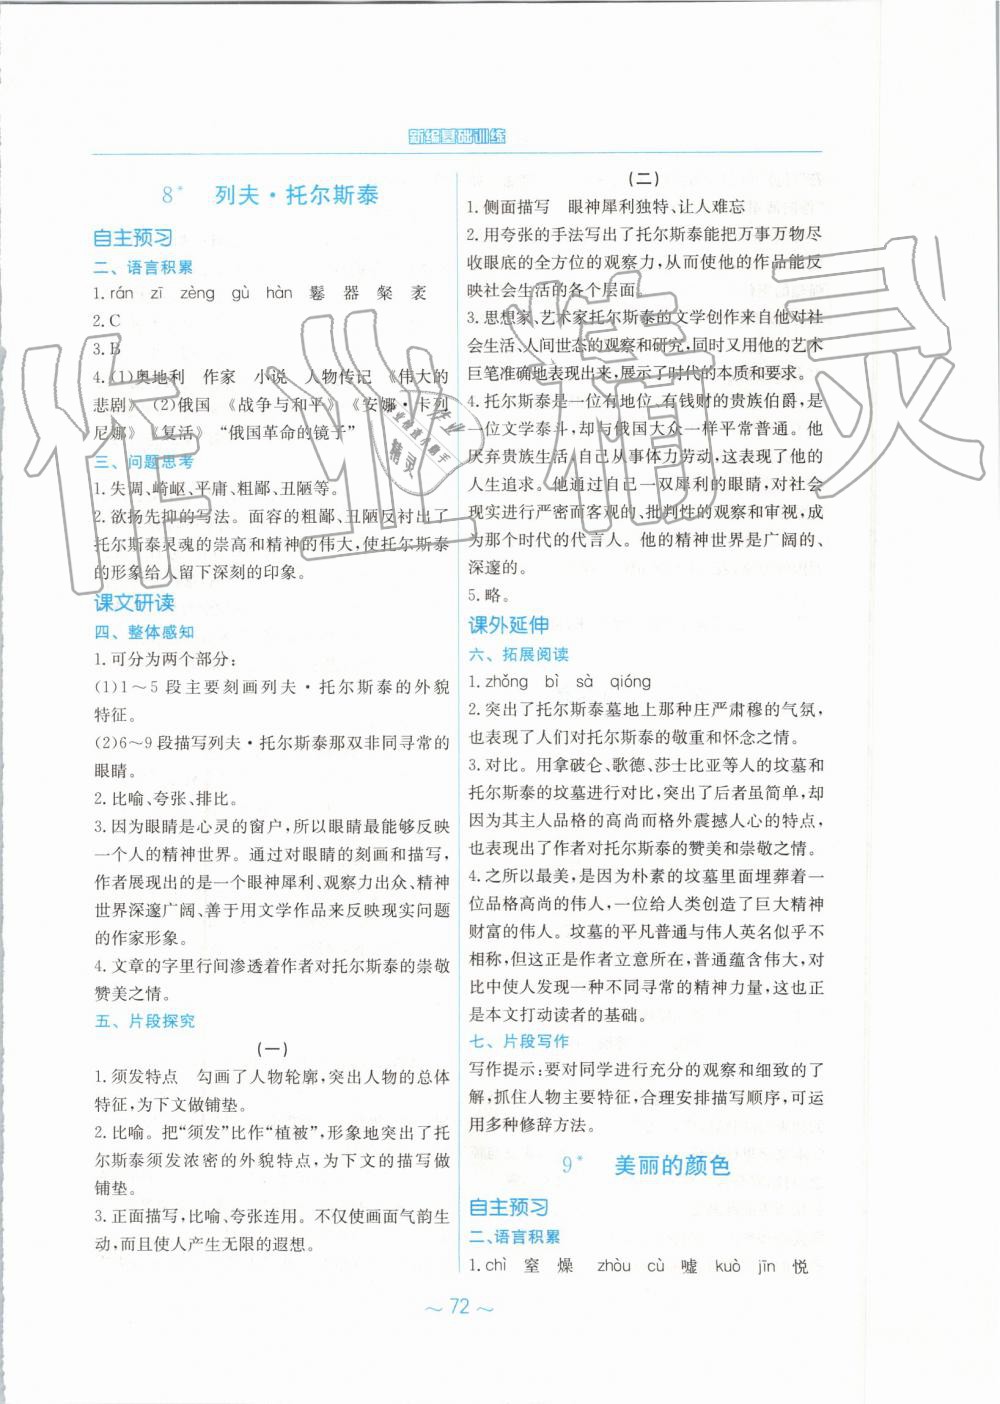 新编基础训练
8* 列夫·托尔斯泰
自主预习
二、语言积累
1. rán zī zèng gù hàn 鬈 器 粲 衮
2. C
3. B
4. (1)奥地利 作家 小说 人物传记 《伟大的
悲剧》 (2)俄国 《战争与和平》《安娜·卡列
尼娜》《复活》 “俄国革命的镜子”
三、问题思考
1. 失调、崎岖、平庸、粗鄙、丑陋等。
2. 欲扬先抑的写法。面容的粗鄙、丑陋反衬出了
托尔斯泰灵魂的崇高和精神的伟大,使托尔斯泰
的形象给人留下深刻的印象。
课文研读
四、整体感知
1. 可分为两个部分:
(1)1～5 段主要刻画列夫·托尔斯泰的外貌
特征。
(2)6～9 段描写列夫·托尔斯泰那双非同寻常的
眼睛。
2. 比喻、夸张、排比。
3. 因为眼睛是心灵的窗户,所以眼睛最能够反映
一个人的精神世界。通过对眼睛的刻画和描写,
作者展现出的是一个眼神犀利、观察力出众、精神
世界深邃广阔、善于用文学作品来反映现实问题
的作家形象。
4. 文章的字里行间渗透着作者对托尔斯泰的崇敬
赞美之情。
五、片段探究
(一)
1. 须发特点 勾画了人物轮廓,突出人物的总体
特征,为下文做铺垫。
2. 比喻。把“须发”比作“植被”,形象地突出了托
尔斯泰须发浓密的外貌特点,为下文的描写做
铺垫。
3. 正面描写,比喻、夸张连用。不仅使画面气韵生
动,而且使人产生无限的遐想。
(二)
1. 侧面描写 眼神犀利独特、让人难忘
2. 用夸张的手法写出了托尔斯泰能把万事万物尽
收眼底的全方位的观察力,从而使他的作品能反
映社会生活的各个层面。
3. 思想家、艺术家托尔斯泰的文学创作来自他对社
会生活、人间世态的观察和研究,同时又用他的艺术
巨笔准确地表现出来,展示了时代的本质和要求。
4. 托尔斯泰是一位有地位、有钱财的贵族伯爵,是
一位文学泰斗,却与俄国大众一样平常普通。他
厌弃贵族生活,自己从事体力劳动,这表现了他的
人生追求。他通过自己一双犀利的眼睛,对社会
现实进行严密而客观的、批判性的观察和审视,成
为那个时代的代言人。他的精神世界是广阔的、
深邃的。
5. 略。
课外延伸
六、拓展阅读
1. zhǒng bì sà qióng
2. 突出了托尔斯泰墓地上那种庄严肃穆的气氛,
也表现了人们对托尔斯泰的敬重和怀念之情。
3. 对比。用拿破仑、歌德、莎士比亚等人的坟墓和
托尔斯泰的坟墓进行对比,突出了后者虽简单,却
因为其主人品格的高尚而格外震撼人心的特点,
也表达出了作者对托尔斯泰的赞美和崇敬之情。
4. 之所以最美,是因为朴素的坟墓里面埋葬着一
位品格高尚的伟人,一位给人类创造了巨大精神
财富的伟人。坟墓的平凡普通与伟人英名似乎不
相称,但这正是作者立意所在,普通蕴含伟大,对
比中使人发现一种不同寻常的精神力量,这也正
是本文打动读者的基础。
七、片段写作
写作提示:要对同学进行充分的观察和细致的了
解,抓住人物主要特征,合理安排描写顺序,可运
用多种修辞方法。
9* 美丽的颜色
自主预习
二、语言积累
1. chì 窒 燥 zhòu cù 嘘 kuò jīn 悦
～ 72 ～
作业精灵